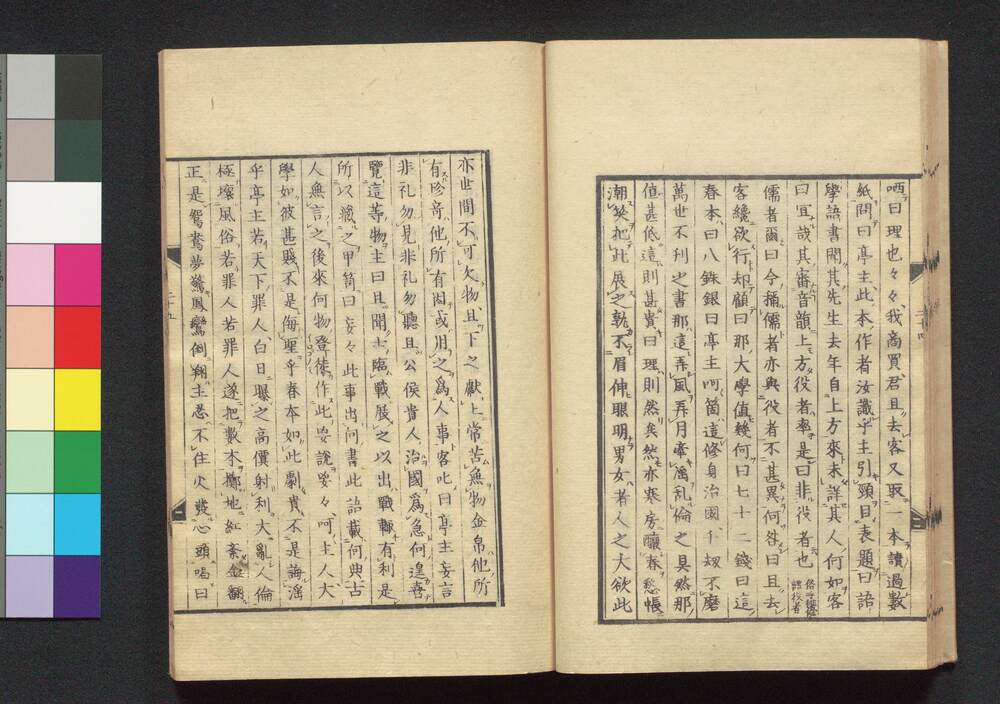 哂曰理也々々我高買君且去客又取一本讀過數
紙問曰亭主此本作者汝識乎主引頸目表題曰語
學語書聞其先生去年自上方來未詳其人何如客
曰宜哉其審音韻上方役者率是曰非役者也俗呼儒俗謂役者
儒者爾曰今稱儒者亦與役者不甚異何咎曰且去
客纔欲行却顧曰那大學值幾何曰七十二錢曰這
春本曰八銖銀曰亭主呵箇這修身治國千切不磨
萬世不刊之書那這弄風弄月牽滛乱倫之具然那
值甚低這則甚貴曰理則然矣然亦寒房釀春愁帳
潮笑把此展之孰不眉伸眼明男女者人之大欲此
亦世間不可欠物且下之獻上常苦無物金帛他所
有珍奇他所有因或用之為人事客叱曰亭主妄言
非礼勿見非礼勿聽且公侯貴人治國為急何遑喜
覽這等物主曰且聞士臨戰展之以出戰輒有利是
所以藏之甲笥曰妄々此事出何書此話載何典古
人無言之後來何物登徒作此妄說妄々呵主人大
學如彼甚賤不是侮聖乎春本如此劇貴不是誨滛
乎亭主若天下罪人白日曝之高價射利大亂人倫
極壞風俗若罪人若罪人遂把數本擲地紅紊金翻
正是鴛鴦夢驚鳳鸞倒翔主恚不住火發心頭喝曰
二十四
二十五